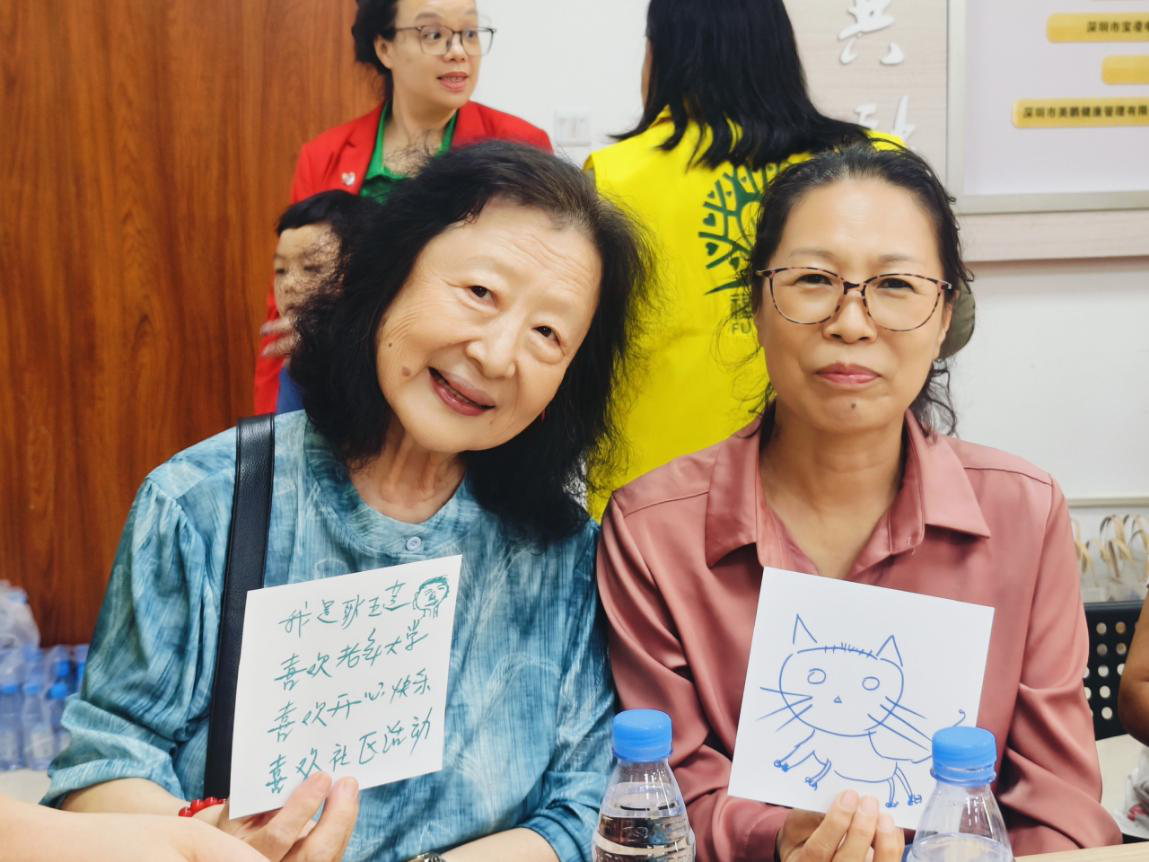 典
深圳市宝
深圳市美鹏健康管理有限
FU
我是
喜欢老年大学
喜欢开心快乐
喜欢社区活动